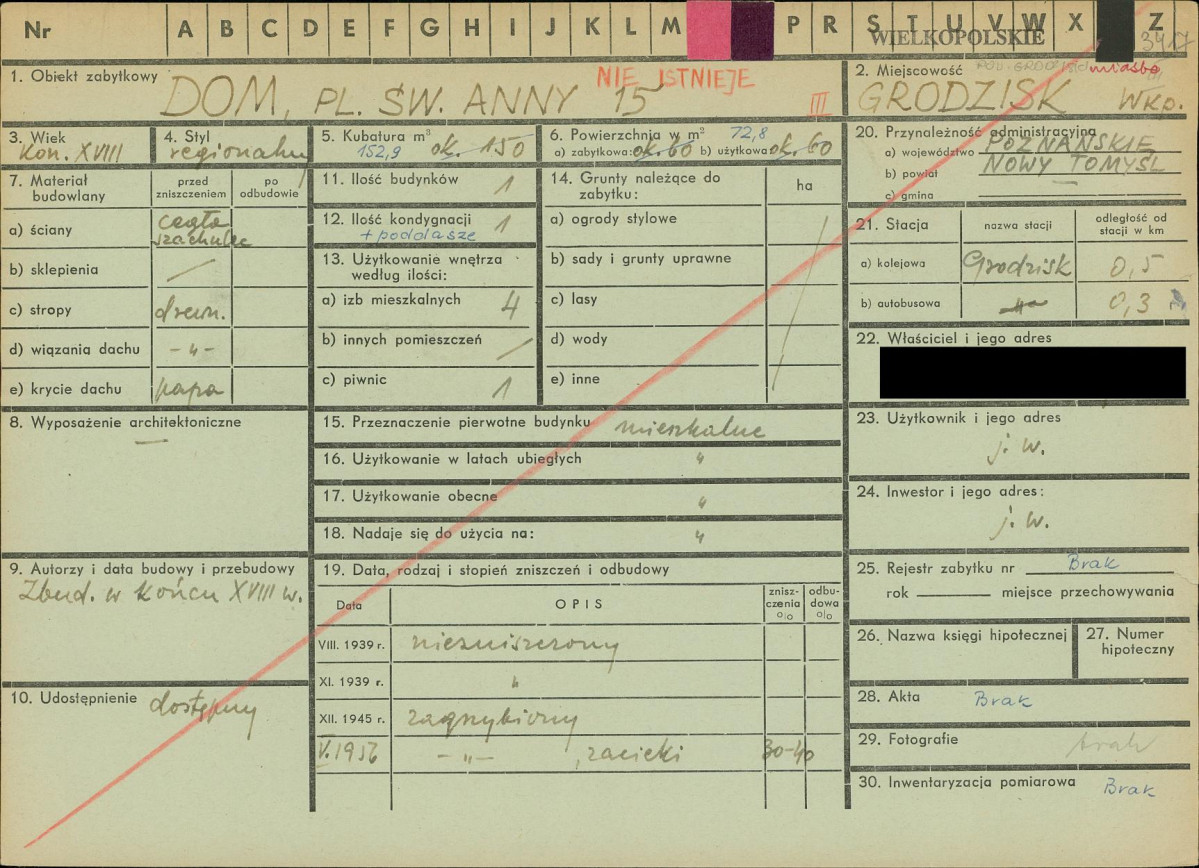 Nr A B C D E F G H I J K L M P R S T U V W X Z
WIELKOPOLSKIE
1. Obiekt zabytkowy
NIE ISTNIEJE
DOM, PL. ŚW. ANNY 15
III
2. Miejscowość miasto
GRODZISK WKP.
3. Wiek
kon. XVIII
4. Styl
regionalny
5. Kubatura m³
152,9 ok. 150
6. Powierzchnia w m² 72,8
a) zabytkowa: ok. 60 b) użytkowa ok. 60
20. Przynależność administracyjna
a) województwo POZNAŃSKIE
b) powiat NOWY TOMYŚL
c) gmina
7. Materiał budowlany
przed zniszczeniem
po odbudowie
a) ściany cegła szachulec
b) sklepienia
c) stropy drewn.
d) wiązania dachu – „ –
e) krycie dachu papa
11. Ilość budynków 1
12. Ilość kondygnacji 1
+ poddasze
13. Użytkowanie wnętrza według ilości:
a) izb mieszkalnych 4
b) innych pomieszczeń
c) piwnic 1
14. Grunty należące do zabytku:
ha
a) ogrody stylowe
b) sady i grunty uprawne
c) lasy
d) wody
e) inne
21. Stacja
nazwa stacji
odległość od stacji w km
a) kolejowa Grodzisk 0,5
b) autobusowa –„– 0,3
22. Właściciel i jego adres
8. Wyposażenie architektoniczne
—
15. Przeznaczenie pierwotne budynku mieszkalne
16. Użytkowanie w latach ubiegłych „
17. Użytkowanie obecne „
18. Nadaje się do użycia na: „
23. Użytkownik i jego adres
j. w.
24. Inwestor i jego adres:
j. w.
9. Autorzy i data budowy i przebudowy
Zbud. w końcu XVIII w.
10. Udostępnienie dostępny
19. Data, rodzaj i stopień zniszczeń i odbudowy
Data
OPIS
znisz-czenia %
odbu-dowa %
VIII. 1939 r. niezniszczony
XI. 1939 r. „
XII. 1945 r. zagrzybiony
V. 1956 – „ – , zacieki 30-40
25. Rejestr zabytku nr Brak
rok miejsce przechowywania
26. Nazwa księgi hipotecznej
27. Numer hipoteczny
28. Akta Brak
29. Fotografie brak
30. Inwentaryzacja pomiarowa Brak